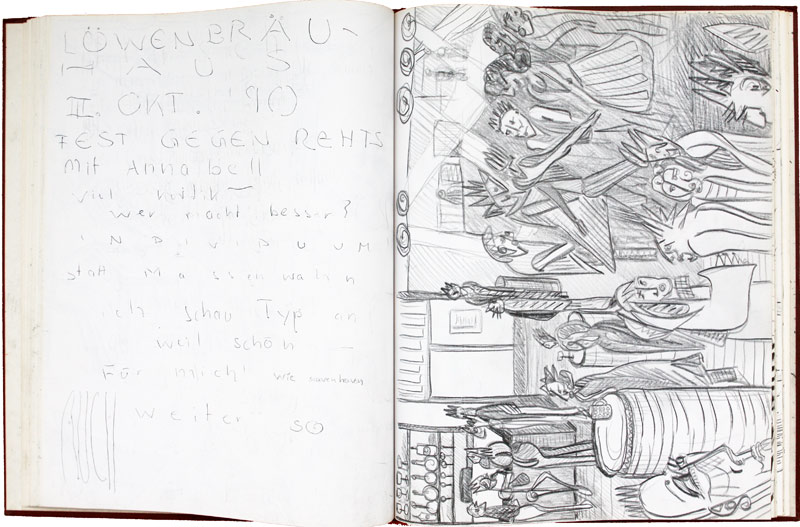 LÖWENBRÄU-
HAUS
II. OKT. '90
FEST GEGEN REHTS
Mit Annabell
viel
wer macht besser?
INDIVIDUUM
statt Massenwahn
ich schau Typ an
weil schön —
Für mich!
weiter so